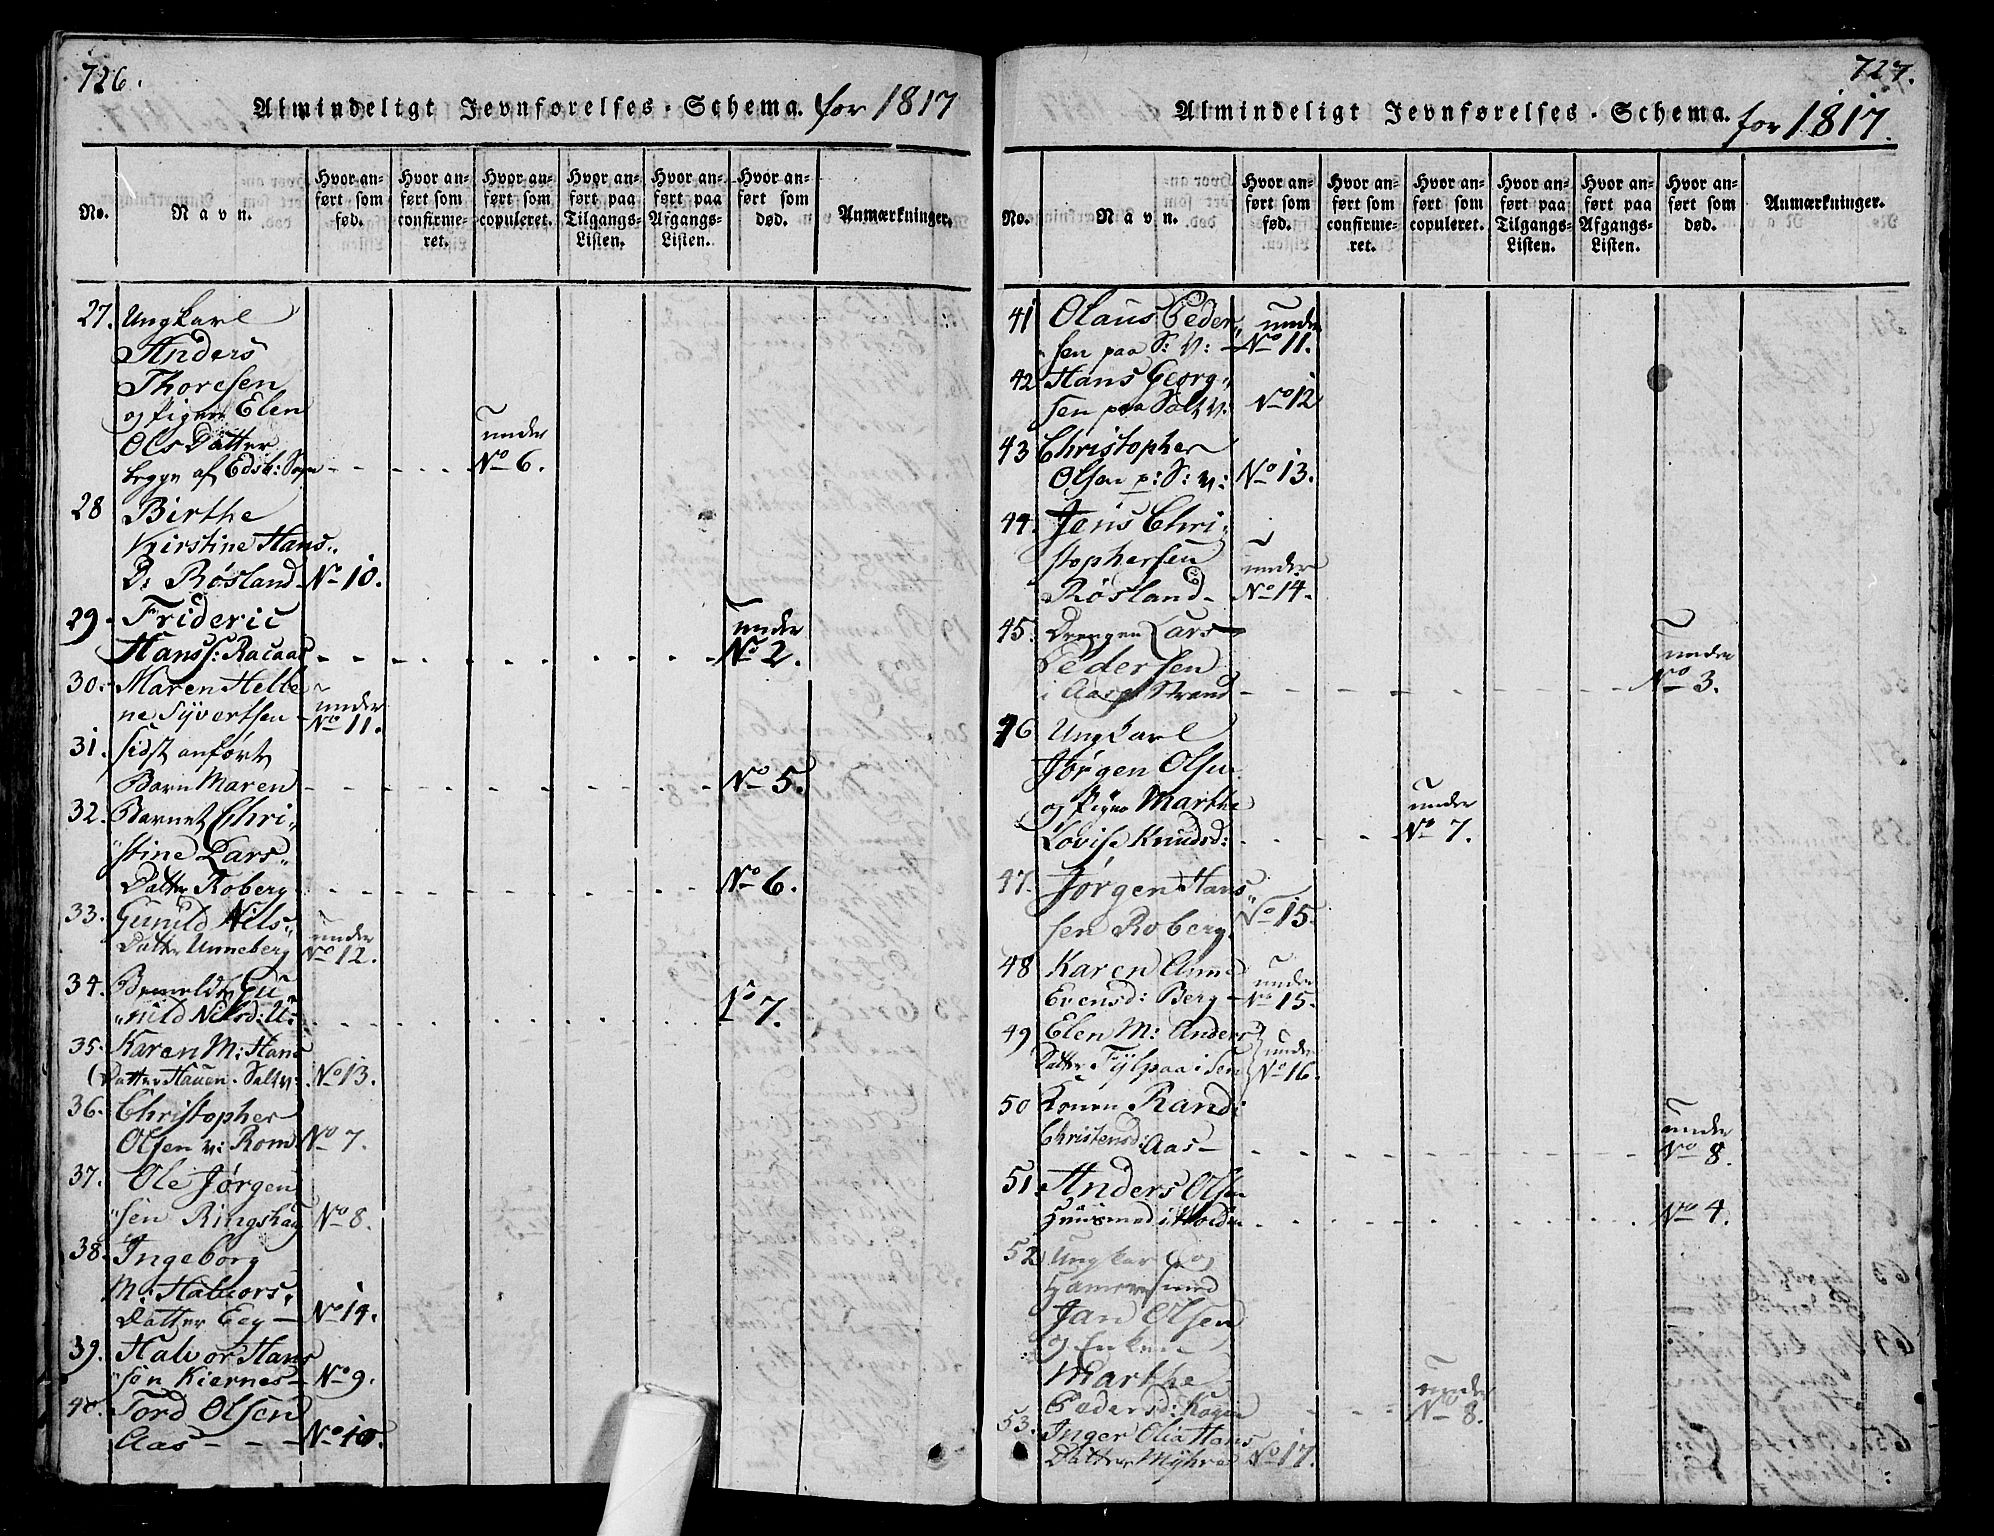 726.
Almindeligt Jevnførelses-Schema. for 1817
No.
Navn.
Hvor anført som fød.
Hvor anført som confirmeret.
Hvor anført som copuleret.
Hvor anført paa Tilgangs-Listen.
Hvor anført paa Afgangs-Listen.
Hvor anført som død.
Anmærkninger.
27. Ungkarl
Anders
Thoresen
og Pigen Elen
Ols Datter under
begge af Edsb: Sogn - - - - No 6.
28 Birthe
Kirstine Hans„
D: Røsland No 10.
29. Frideric under
Hanss: Racaas - - - - - No 2.
30. Maren Helle under
ne Syvertsen No 11.
31. sidst anført
Barn Maren - - - - - No 5.
32. Barnet Chri„
„stine Lars„
Datter Roberg - - - - - No 6.
33. Gunild Nils„ under
Datter Unneberg No 12.
34. Gu
„nild Nilsd: U: - - - - - No 7.
35. Karen M: Hans
Datter Hauen. Saltv: No 13.
36. Christopher
Olsen v: Rom No 7.
37. Ole Jørgen
„sen Ringshaug No 8.
38. Ingeborg
M: Halvors„
Datter Eeg - No 14.
39. Halvor Hans
„søn Kiernes - No 9.
40. Tord Olsen
Aas - - - No 10.
727.
Almindeligt Jevnførelses-Schema. for 1817.
No.
Navn.
Hvor anført som fød.
Hvor anført som confirmeret.
Hvor anført som copuleret.
Hvor anført paa Tilgangs-Listen.
Hvor anført paa Afgangs-Listen.
Hvor anført som død.
Anmærkninger.
41 Olaus Peder„ under
sen paa S: V: - No 11.
42 Hans Georg„
sen paa Salt V: No 12
43 Christopher
Olsen p: S: v: No 13.
44. Jens Chri„
stophersen under
Røsland - No 14.
45. Drengen Lars under
Pedersen
i Aasg Strand - - - - - No 3.
46 Ungkarl
Jørgen Olsen
og Pigen Marthe under
Lovise Knudsd: - - - No 7.
47. Jørgen Hans„
sen Roberg. No 15.
48 Karen Anne under
Evensd: Berg - No 15.
49 Elen M: Anders under
Datter Fylpaa i Sen No 16.
50 Konen Randi under
Christensd: Aas - - - - - No 8.
51. Anders Olsen
Huusmand i Holden - - - - - No 4.
52 Ungkarl og
Hammersmed
Jan Olsen
og Enken
Marthe under
Pedersd: - - No 8.
53. Inger Olia Hans
Datter Myhre No 17.